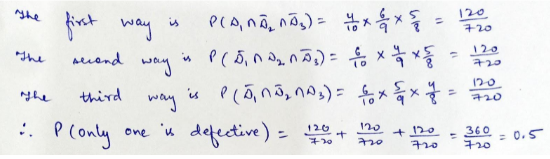 The first way is P(D₁∩D̄₂∩D̄₃) = 4/10 × 6/9 × 5/8 = 120/720
The second way is P(D̄₁∩D₂∩D̄₃) = 6/10 × 4/9 × 5/8 = 120/720
The third way is P(D̄₁∩D̄₂∩D₃) = 6/10 × 5/9 × 4/8 = 120/720
∴ P(only one is defective) = 120/720 + 120/720 + 120/720 = 360/720 = 0.5